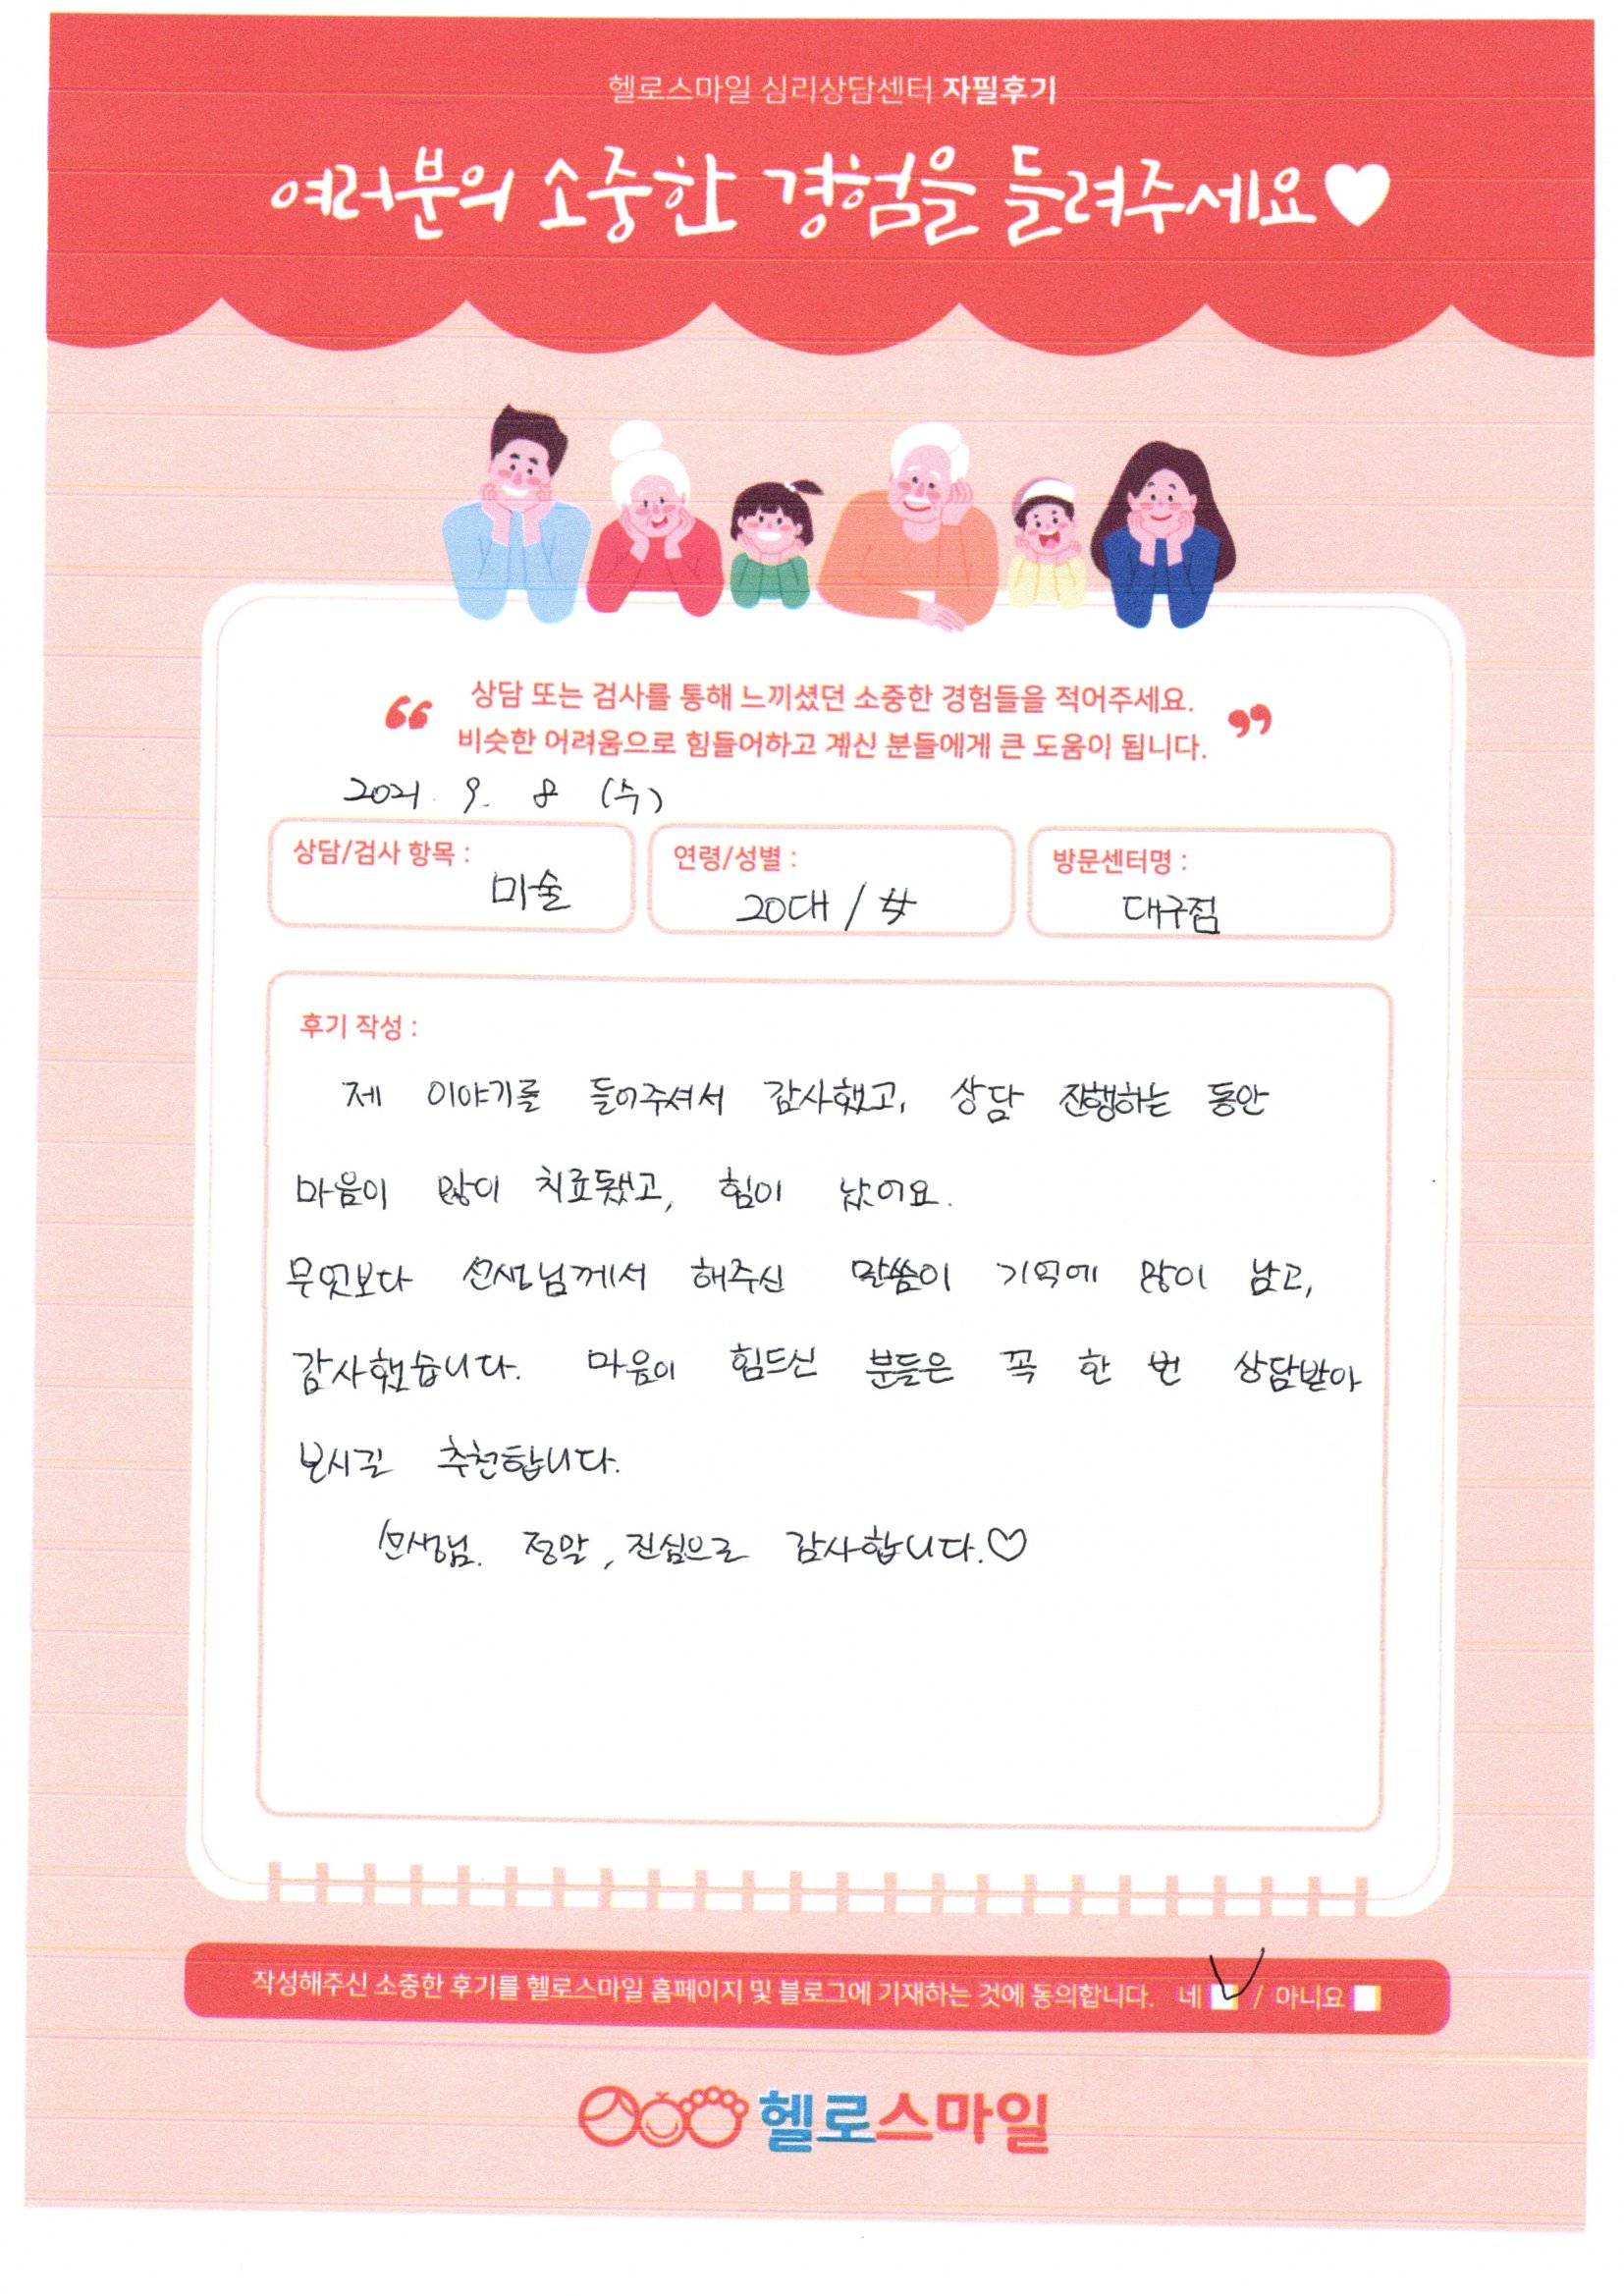 헬로스마일 심리상담센터 자필후기
여러분의 소중한 경험을 들려주세요♥
“ 상담 또는 검사를 통해 느끼셨던 소중한 경험들을 적어주세요.
비슷한 어려움으로 힘들어하고 계신 분들에게 큰 도움이 됩니다. ”
2021. 9. 8 (수)
상담/검사 항목 : 미술
연령/성별 : 20대 / 女
방문센터명 : 대구점
후기 작성 :
제 이야기를 들어주셔서 감사했고, 상담 진행하는 동안
마음이 많이 치료됐고, 힘이 났어요.
무엇보다 선생님께서 해주신 말씀이 기억에 많이 남고,
감사했습니다. 마음이 힘드신 분들은 꼭 한 번 상담받아
보시길 추천합니다.
선생님. 정말, 진심으로 감사합니다.♡
작성해주신 소중한 후기를 헬로스마일 홈페이지 및 블로그에 기재하는 것에 동의합니다. 네 ☑ / 아니요 □
헬로스마일